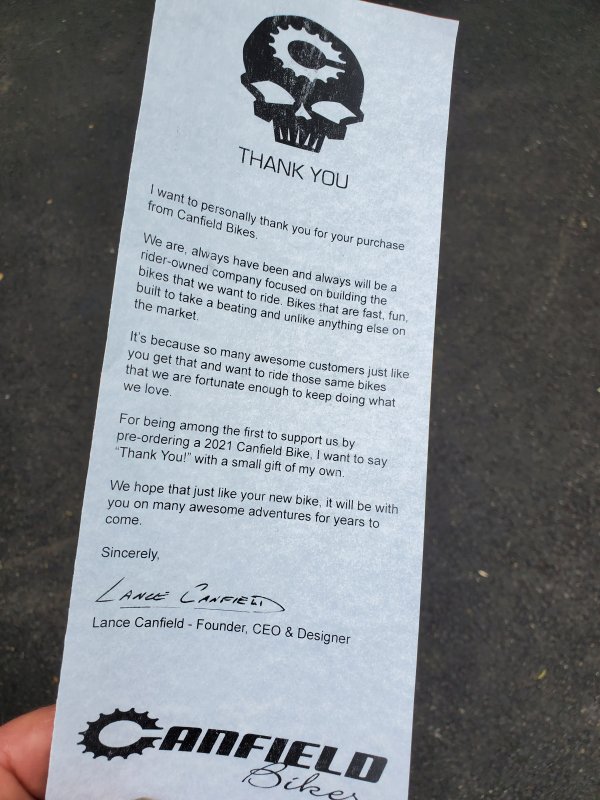 THANK YOU
I want to personally thank you for your purchase
from Canfield Bikes.
We are, always have been and always will be a
rider-owned company focused on building the
bikes that we want to ride. Bikes that are fast, fun,
built to take a beating and unlike anything else on
the market.
It's because so many awesome customers just like
you get that and want to ride those same bikes
that we are fortunate enough to keep doing what
we love.
For being among the first to support us by
pre-ordering a 2021 Canfield Bike, I want to say
"Thank You!" with a small gift of my own.
We hope that just like your new bike, it will be with
you on many awesome adventures for years to
come.
Sincerely,
LANCE CANFIELD
Lance Canfield - Founder, CEO & Designer
CANFIELD
Bikes